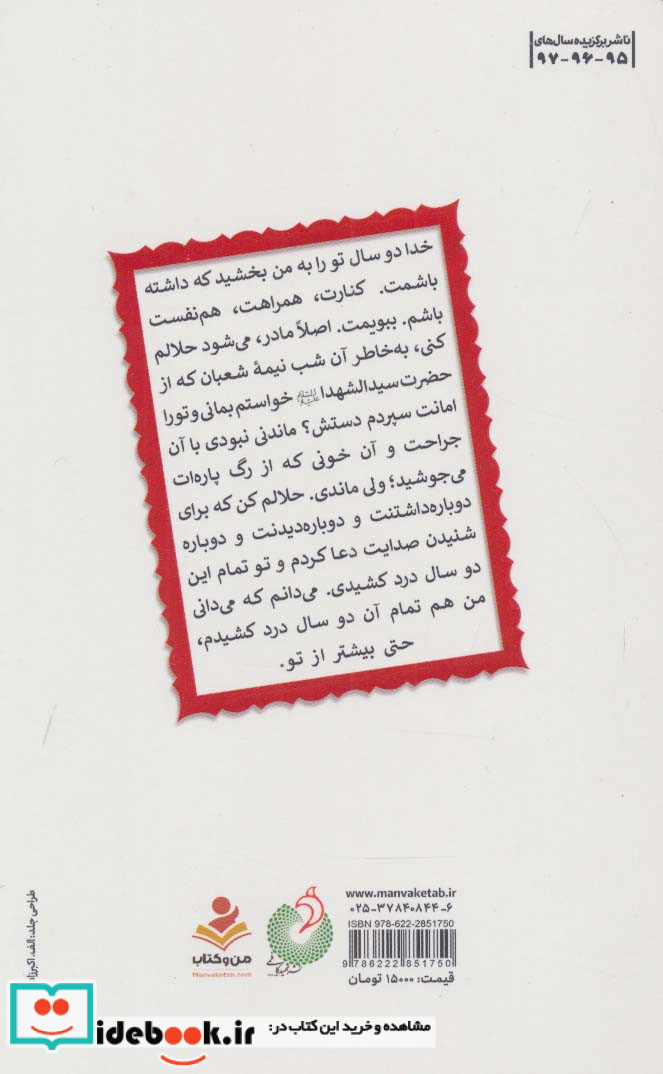 ناشر برگزیده سال‌های
۹۵-۹۶-۹۷
خدا دو سال تو را به من بخشید که داشته
باشمت. کنارت، همراهت، هم‌نفست
باشم. ببویمت. اصلاً مادر، می‌شود حلالم
کنی، به‌خاطر آن شب نیمهٔ شعبان که از
حضرت سیدالشهدا علیه‌السلام خواستم بمانی و تو را
امانت سپردم دستش؟ ماندنی نبودی با آن
جراحت و آن خونی که از رگ پاره‌ات
می‌جوشید؛ ولی ماندی. حلالم کن که برای
دوباره‌داشتنت و دوباره‌دیدنت و دوباره
شنیدن صدایت دعا کردم و تو تمام این
دو سال درد کشیدی. می‌دانم که می‌دانی
من هم تمام آن دو سال درد کشیدم،
حتی بیشتر از تو.
طراحی جلد: الف. اکبرزاد
من و کتاب
Manvaketab.com
نشر شهید کاظمی
www.manvaketab.ir
۰۲۵-۳۷۸۴۰۸۴۴-۶
ISBN 978-622-2851750
9 786222 851750
قیمت: ۱۵۰۰۰ تومان
idebook.ir
مشاهده و خرید این کتاب در: